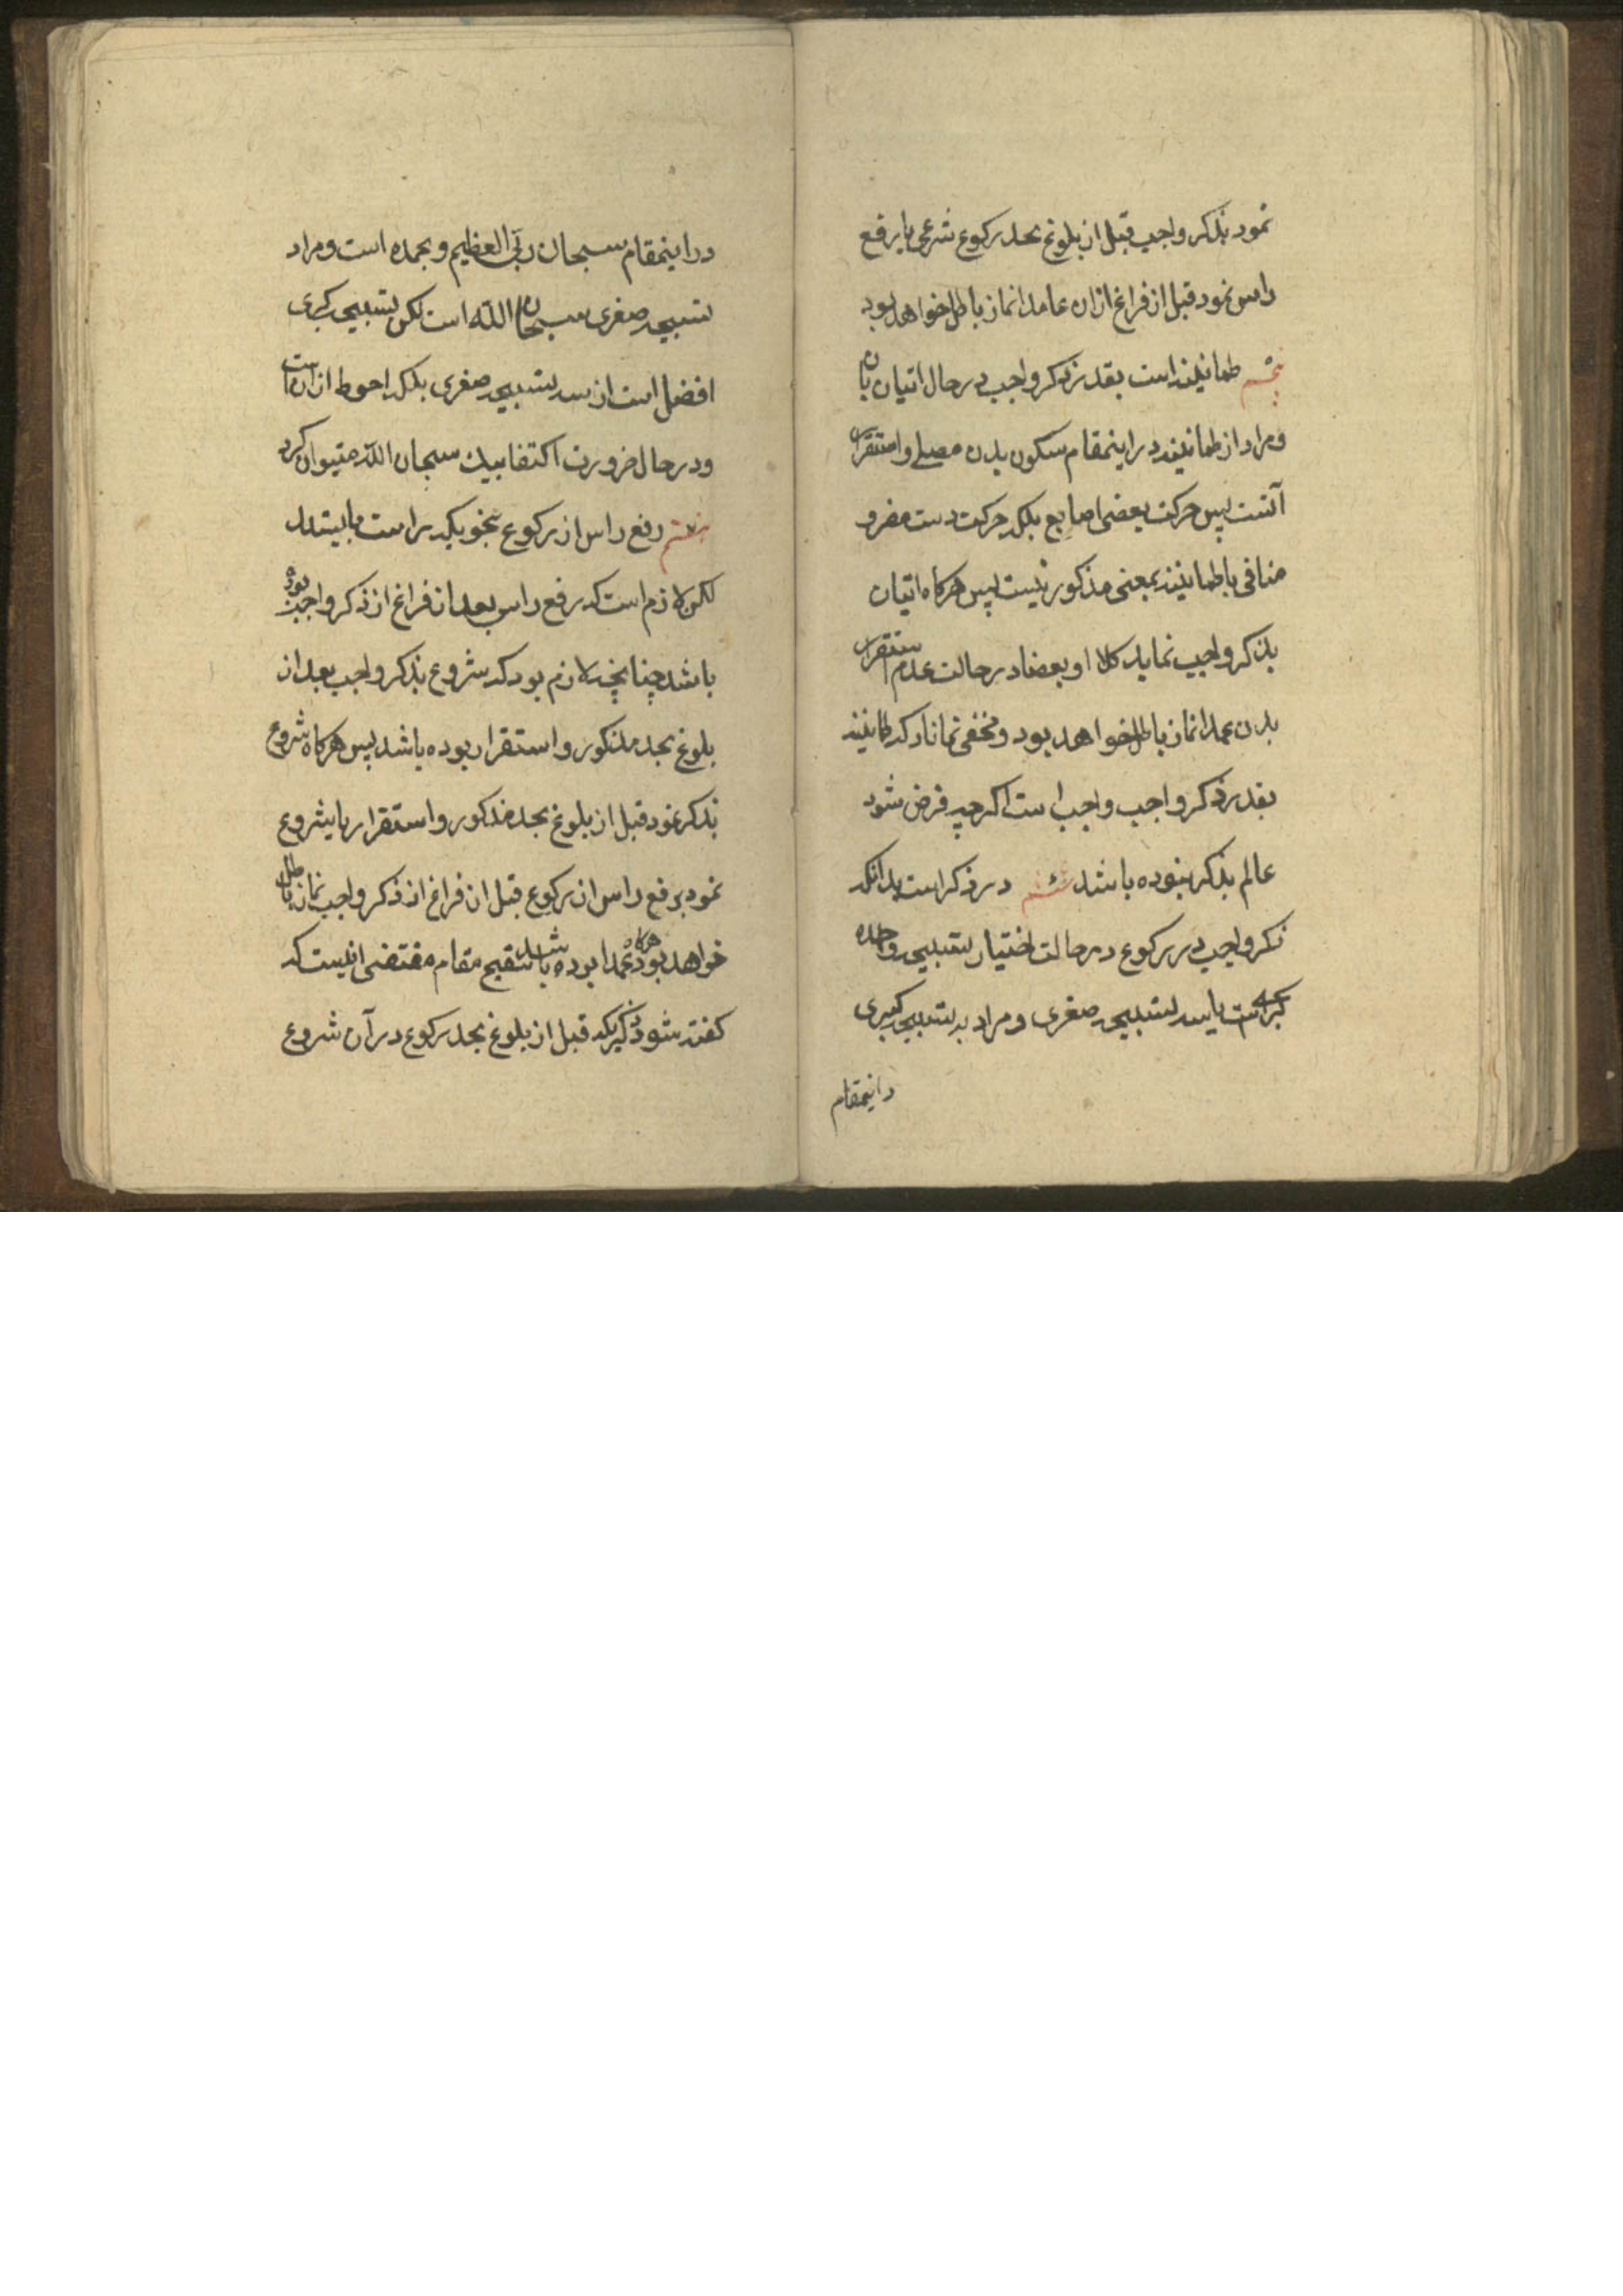 نمود بذکر واجب قبل از بلوغ بحد رکوع شرعی یا رفع
راس نمود قبل از فراغ ازان عامدا نماز باطل خواهد بود
پنجم طمانینه است بقدر ذکر واجب در حال اتیان بان
و مراد از طمانینه در اینمقام سکون بدن مصلی و استقرار
آنست پس حرکت بعضی اصابع بلکه حرکت دست مضر و
منافی با طمانینه بمعنی مذکور نیست پس هرکاه اتیان
بذکر واجب نماید کلا او بعضا در حالت عدم استقرار
بدن عمدا نماز باطل خواهد بود و مخفی نماناد که طمانینه
بقدر ذکر واجب واجب است اکرچه فرض شود
عالم بذکر نبوده باشد ششم در ذکر است بدانکه
ذکر واجب در رکوع در حالت اختیار تسبیح واحده
کبری است یا سه تسبیح صغری و مراد به تسبیح کبری
در اینمقام
در اینمقام سبحان ربی العظیم و بحمده است و مراد
تسبیح صغری سبحان الله است لکن تسبیح کبری
افضل است از سه تسبیح صغری بلکه احوط ازان است
و در حال ضرورت اکتفا بیک سبحان الله میتوان کرد
هفتم رفع راس از رکوع بنحویکه راست بایستد
لکن لازم است که رفع راس بعد از فراغ از ذکر واجب بوده
باشد چنانچه لازم بود که شروع بذکر واجب بعد از
بلوغ بحد مذکور و استقرار بوده باشد پس هرکاه شروع
بذکر نمود قبل از بلوغ بحد مذکور و استقرار یا شروع
نمود برفع راس از رکوع قبل از فراغ از ذکر واجب نماز باطل
خواهد بود هرکاه عمدا بوده باشد تنقیح مقام مقتضی انیست که
کفته شود ذکریکه قبل از بلوغ بحد رکوع در آن شروع